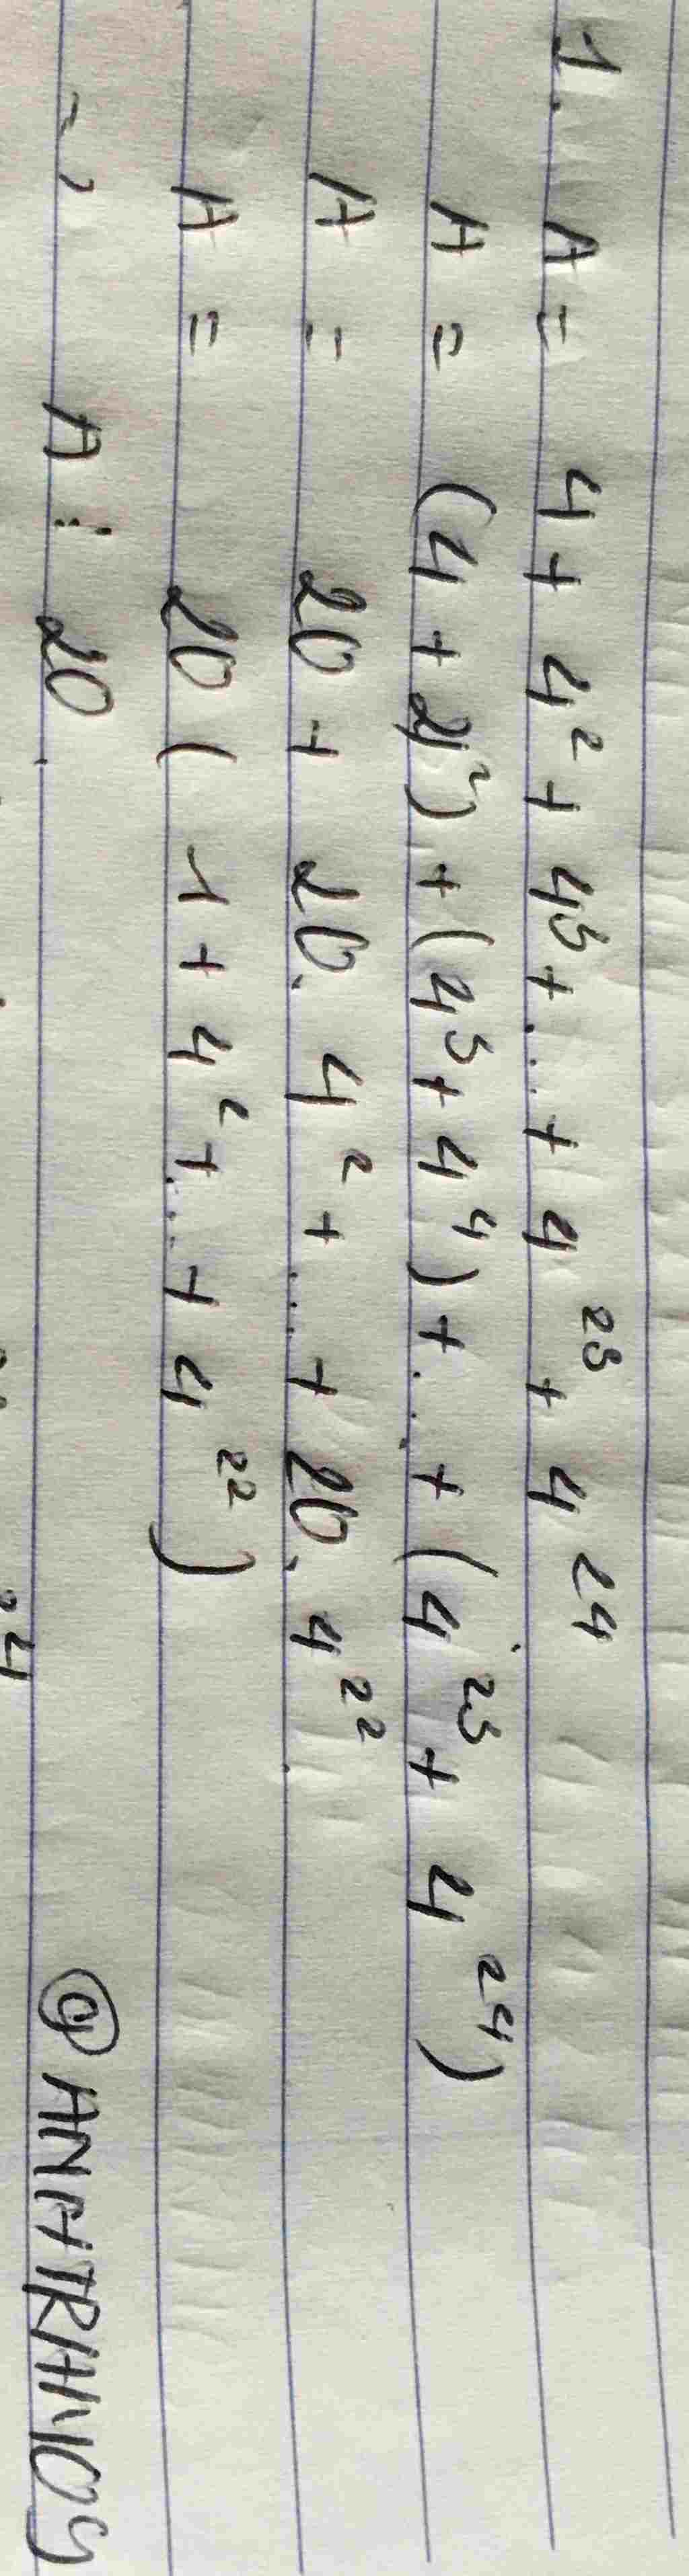 1. A = 4 + 4² + 4³ + ... + 4²³ + 4²⁴
A = (4 + 4²) + (4³ + 4⁴) + ... + (4²³ + 4²⁴)
A = 20 + 20. 4² + ... + 20. 4²²
A = 20 ( 1 + 4² + ... + 4²² )
~) A ⋮ 20.
@ANHTRHMOG
24